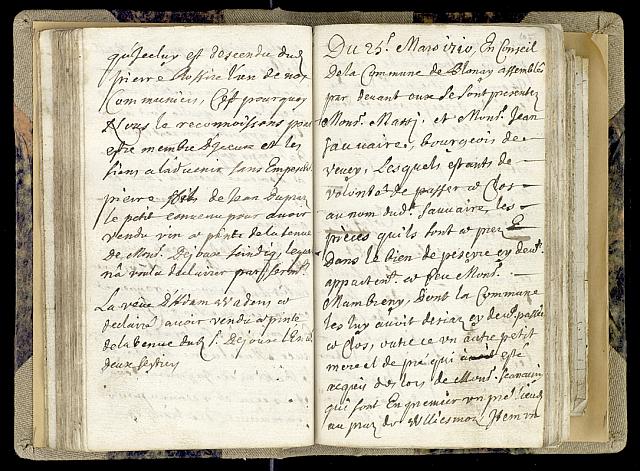 qu'Jceluy est descendu dud.
pierre l'un de nos
Communiers, C'est pourquoy
Nous le reconnoissons pour
estre membre d'jceux et les
siens a l'advenir sans Empesch.
pierre fils de Jean Dupraz
le petit convenu pour avoir
vendu vin a pinte de la tenue
de Mons. Dejoux sindiq, lequel
n'a voulu declairer par serm.t
La veuve d'Adam a
declairé avoir vendu a pinte
de la tenue dud. Sr. Dejoux l'Enviro
deux sestiers
Du 25e. Mars 1710, En Conseil
De la Commune de Blonay assemblé
par devant eux se sont presentez
Monsr. et Monsr. Jean
Sauvaire, bourgeois de
vevey, Lesquels estants de
volonté de passer a Clos
au nom dudt. Sauvaire, les
pieces qu'ils sont a prez
Dans le bien de reserve cy devt.
appartent. a feu Monsr.
Mambrey, Dont la Commune
les luy auroit desja cy devt. passé
a Clos, outre ce un autre petit
morcel de pré qui esté
acquis des hoirs de Monsr.
qui sont En premier un pré lieudit
au praz du Item un